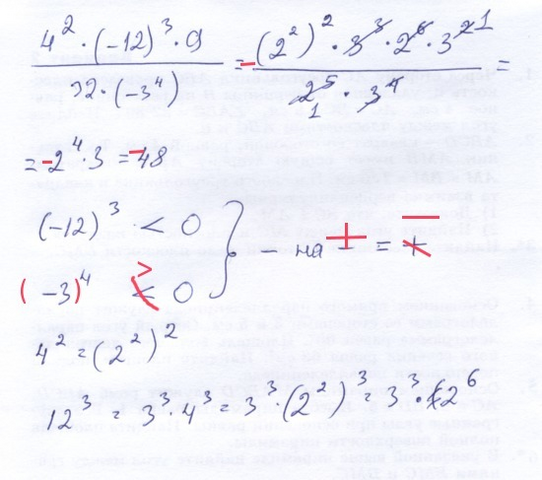 4² · (-12)³ · 9 / 32 · (-3⁴) = - (2²)² · 3³ · 2⁶ · 3² 1 / 2⁵ 1 · 3⁴ =
= - 2⁴ · 3 = - 48
(-12)³ < 0
- на + = +
(-3)⁴ > < 0
4² = (2²)²
12³ = 3³ · 4³ = 3³ (2²)³ = 3³ · 2⁶